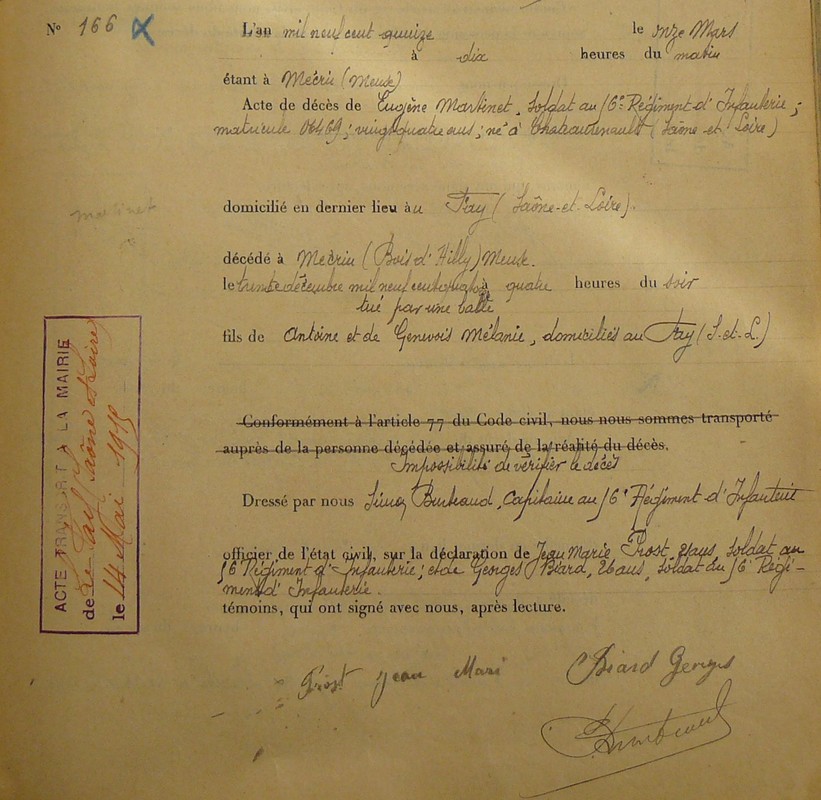 N° 166
L'an mil neuf cent quinze le onze Mars
à dix heures du matin
étant à Mécrin (Meuse)
Acte de décès de Eugène Martinet, soldat au 56e Régiment d'Infanterie;
matricule 06469; vingt quatre ans; né à Chateaurenault (Saône-et-Loire)
martinet
domicilié en dernier lieu à u Fay (Saône-et-Loire).
décédé à Mécrin (Bois d'Hilly) Meuse.
le trente décembre mil neuf cent à quatre heures du soir
tué par une balle
fils de Antoine et de Genevois Mélanie, domiciliés au Fay (S.-et-L.)
Conformément à l'article 77 du Code civil, nous nous sommes transporté
auprès de la personne décédée et assuré de la réalité du décès.
Impossibilité de vérifier le décès
Dressé par nous Capitaine au 56e Régiment d'Infanterie
officier de l'état civil, sur la déclaration de Jean Marie Prost, 21 ans, soldat au
56e Régiment d'Infanterie; et de Georges Biard, 26 ans, soldat du 56e Régi-
ment d'Infanterie.
témoins, qui ont signé avec nous, après lecture.
Prost Jean Mari
Biard Georges
ACTE TRANSCRIT A LA MAIRIE
de Le Fay Saône et Loire
le 14 Mai 1915